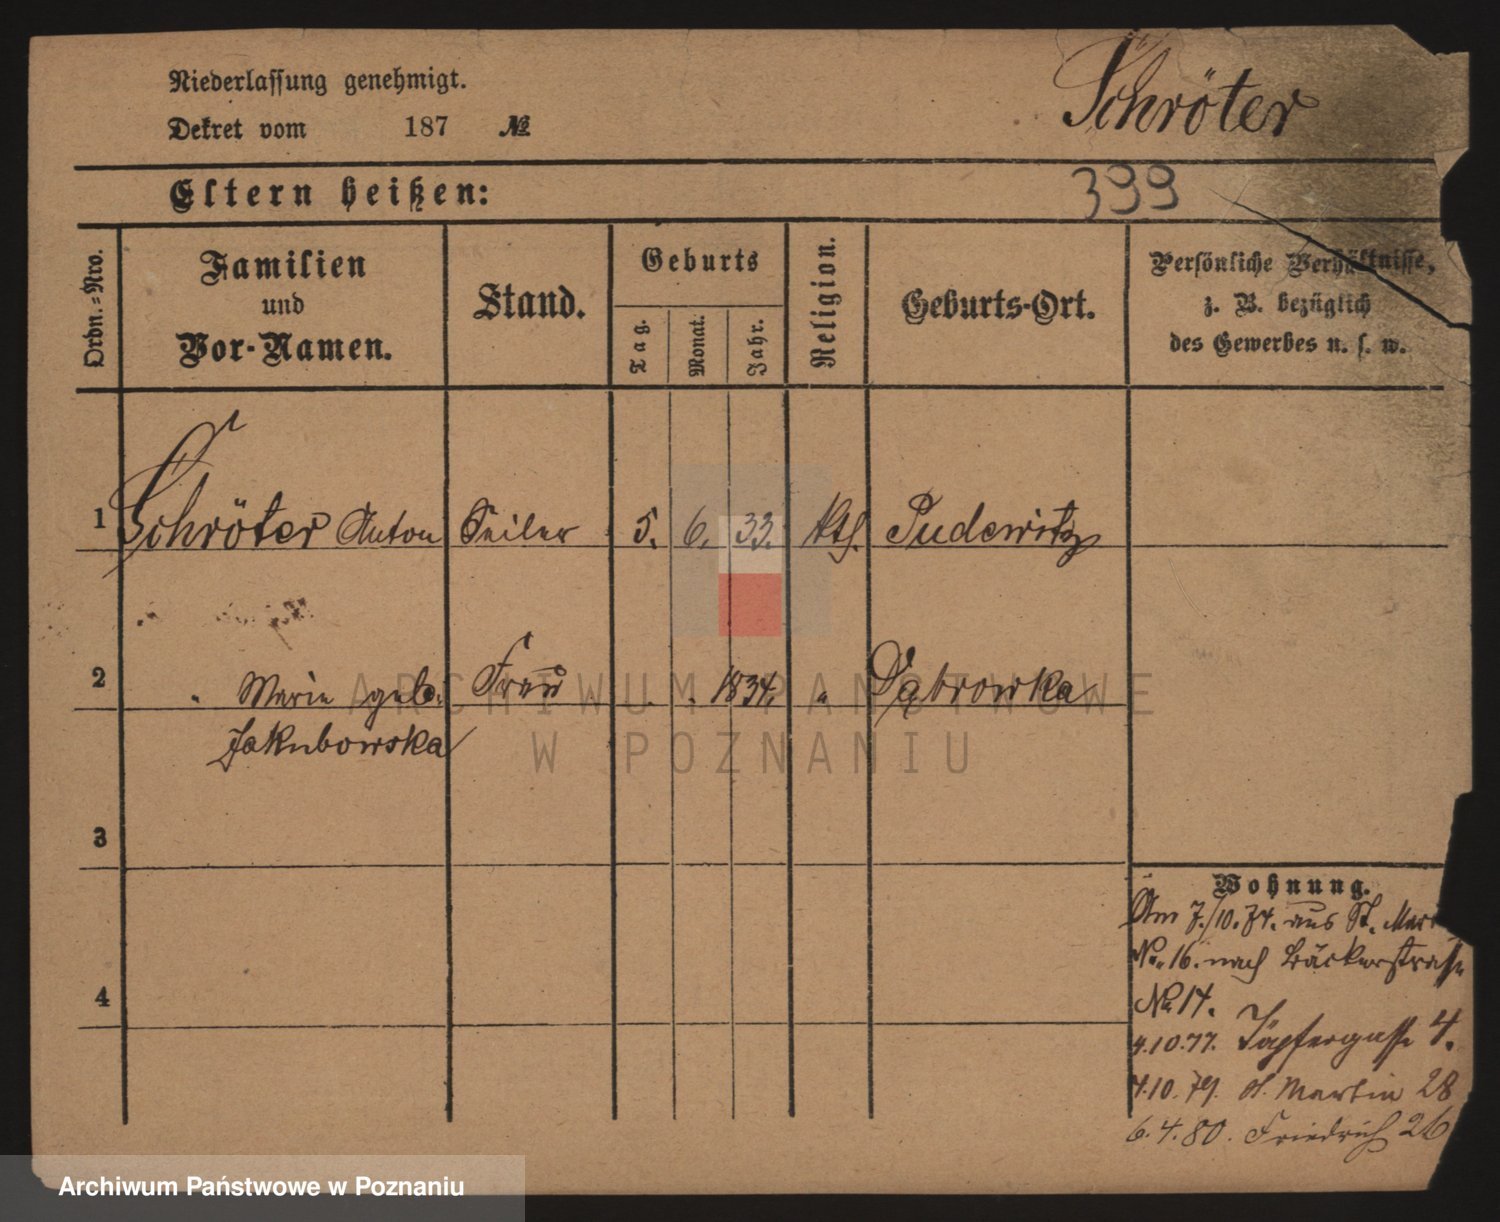 Niederlassung genehmigt.
Dekret vom 187 №
Schröter
Eltern heißen:
399
Ordn.-Nro.
Familien
und
Vor-Namen.
Stand.
Geburts
Tag.
Monat.
Jahr.
Religion.
Geburts-Ort.
Persönliche Verhältnisse,
z. B. bezüglich
des Gewerbes u. s. w.
1 Schröter Anton Seiler 5. 6. 33. kth. Pudewitz
2 " Marie geb. Frau . . 1834. " Dąbrowka
Jakubowska
3
4
Wohnung.
Am 7./10.74. aus St. Mart
No. 16. nach Bäckerstrasse
No 14.
4.10.77. Töpfergasse 4.
4.10.79. St. Martin 28
6.4.80. Friedrich 26
ARCHIWUM PAŃSTWOWE
W POZNANIU
Archiwum Państwowe w Poznaniu